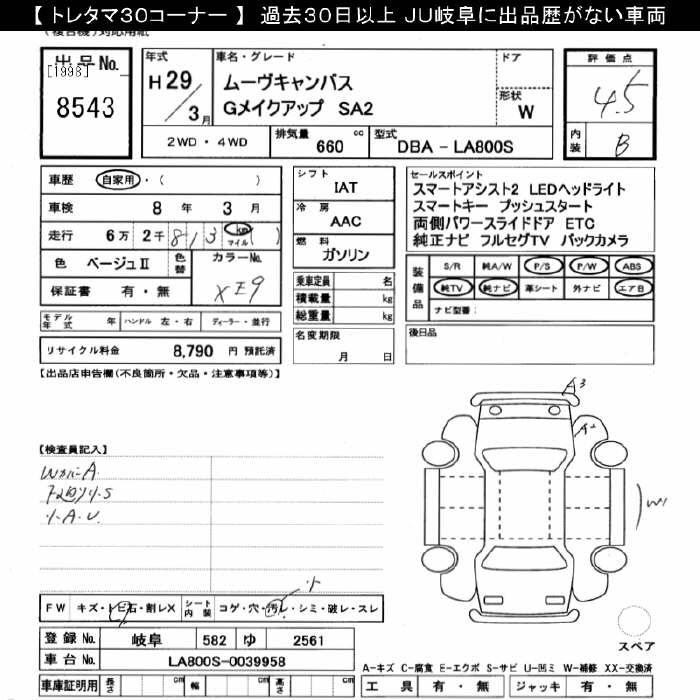 【 トレタマ30コーナー 】 過去30日以上 JU岐阜に出品歴がない車両
(複合機)対応用紙
出品No.
[1998]
8543
年式
H29/3月
車名・グレード
ムーヴキャンバス
Gメイクアップ SA2
ドア
形状
W
2WD・4WD
排気量 660 cc
型式 DBA - LA800S
評価点
4.5
内装 B
車歴 自家用・( )
車検 8年 3月
走行 6万 2千 813 km マイル ( )
色 ベージュⅡ 色替
カラーNo.
保証書 有・無
XE9
シフト
IAT
冷房
AAC
燃料
ガソリン
乗車定員 名
積載量 kg
総重量 kg
名変期限
月 日
セールスポイント
スマートアシスト2 LEDヘッドライト
スマートキー プッシュスタート
両側パワースライドドア ETC
純正ナビ フルセグTV バックカメラ
装備品
S/R 純A/W P/S P/W ABS
純TV 純ナビ 革シート 外ナビ エアB
ナビ型番:
後日品
モデル年式 年 ハンドル 左・右 ディーラー・並行
リサイクル料金 8,790 円 預託済
【出品店申告欄(不良箇所・欠品・注意事項等)】
A3
A2
W1
【検査員記入】
WカバーA
S
・A.U
FW キズ・トビ石・割レX
シート内装 コゲ・穴・汚レ・シミ・破レ・スレ
小
登録No. 岐阜 582 ゆ 2561
車台No. LA800S-0039958
車庫証明用 長さ cm 幅 cm 高さ cm
スペア
A-キズ C-腐食 E-エクボ S-サビ U-凹ミ W-補修 XX-交換済
工具 有・無 ジャッキ 有・無